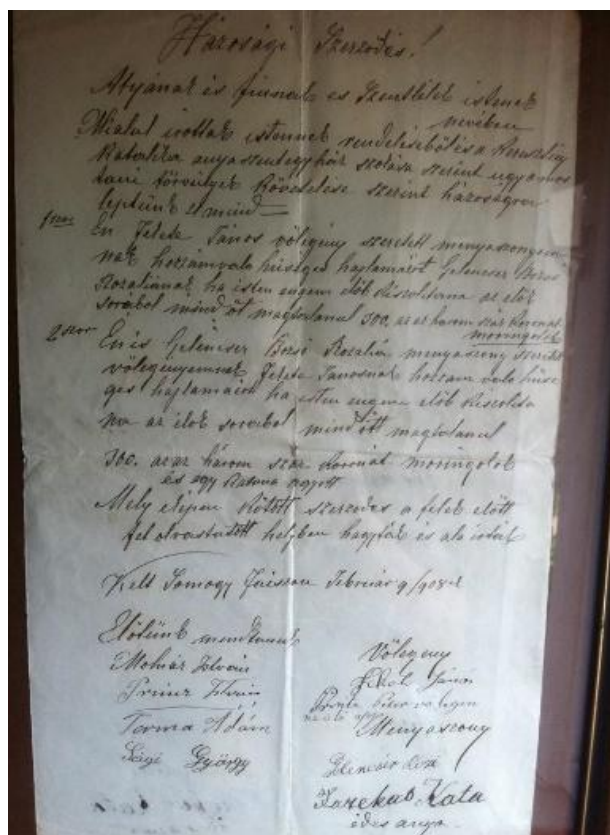 Házosági Szerzödés!
Atyának és fiúnak es Szentlélek istenek
nevében
Mialul irottak istennek rendeliséböl és a Keresztény
Katolika anyaszentegyház szolása szerint ugyamos
tani törvények Követelése szerint házoságra
leptünk el mind
1ször
En Fekete János völegény szeretett menyaszonyom
nak hozzamvalo hüséges hajlamáért Gelencser Bozsó
Rozaliának ha isten engem elöb kiszolitana az elök
sorabol mind öt magtalanul 300. azaz három száz Koronát
moringolok
2szor
En is Gelencser Bozsó Rozalia menyaszony szeretett
völegényemnek Fekete Janosnak hozzam valo hüse
ges hajlamáért ha isten engem elöb kiszolita
na az elök sorabol mind ött magtalanul
300. azaz három száz Koronát moringolok
és egy Katona ágyott
Mely eképen Kötött szerzodes a felek elött
fel olvastatott helyben hagyták és ala irták
Kelt Somogy Februar 9/908-á
Elötünk
Molnár István
Prinz István
Torma Ádám
Sági György
Völegeny
János
Fekete Péter
Menyaszony
Gelencsér Rozi
Kazekas Kata
édes anya